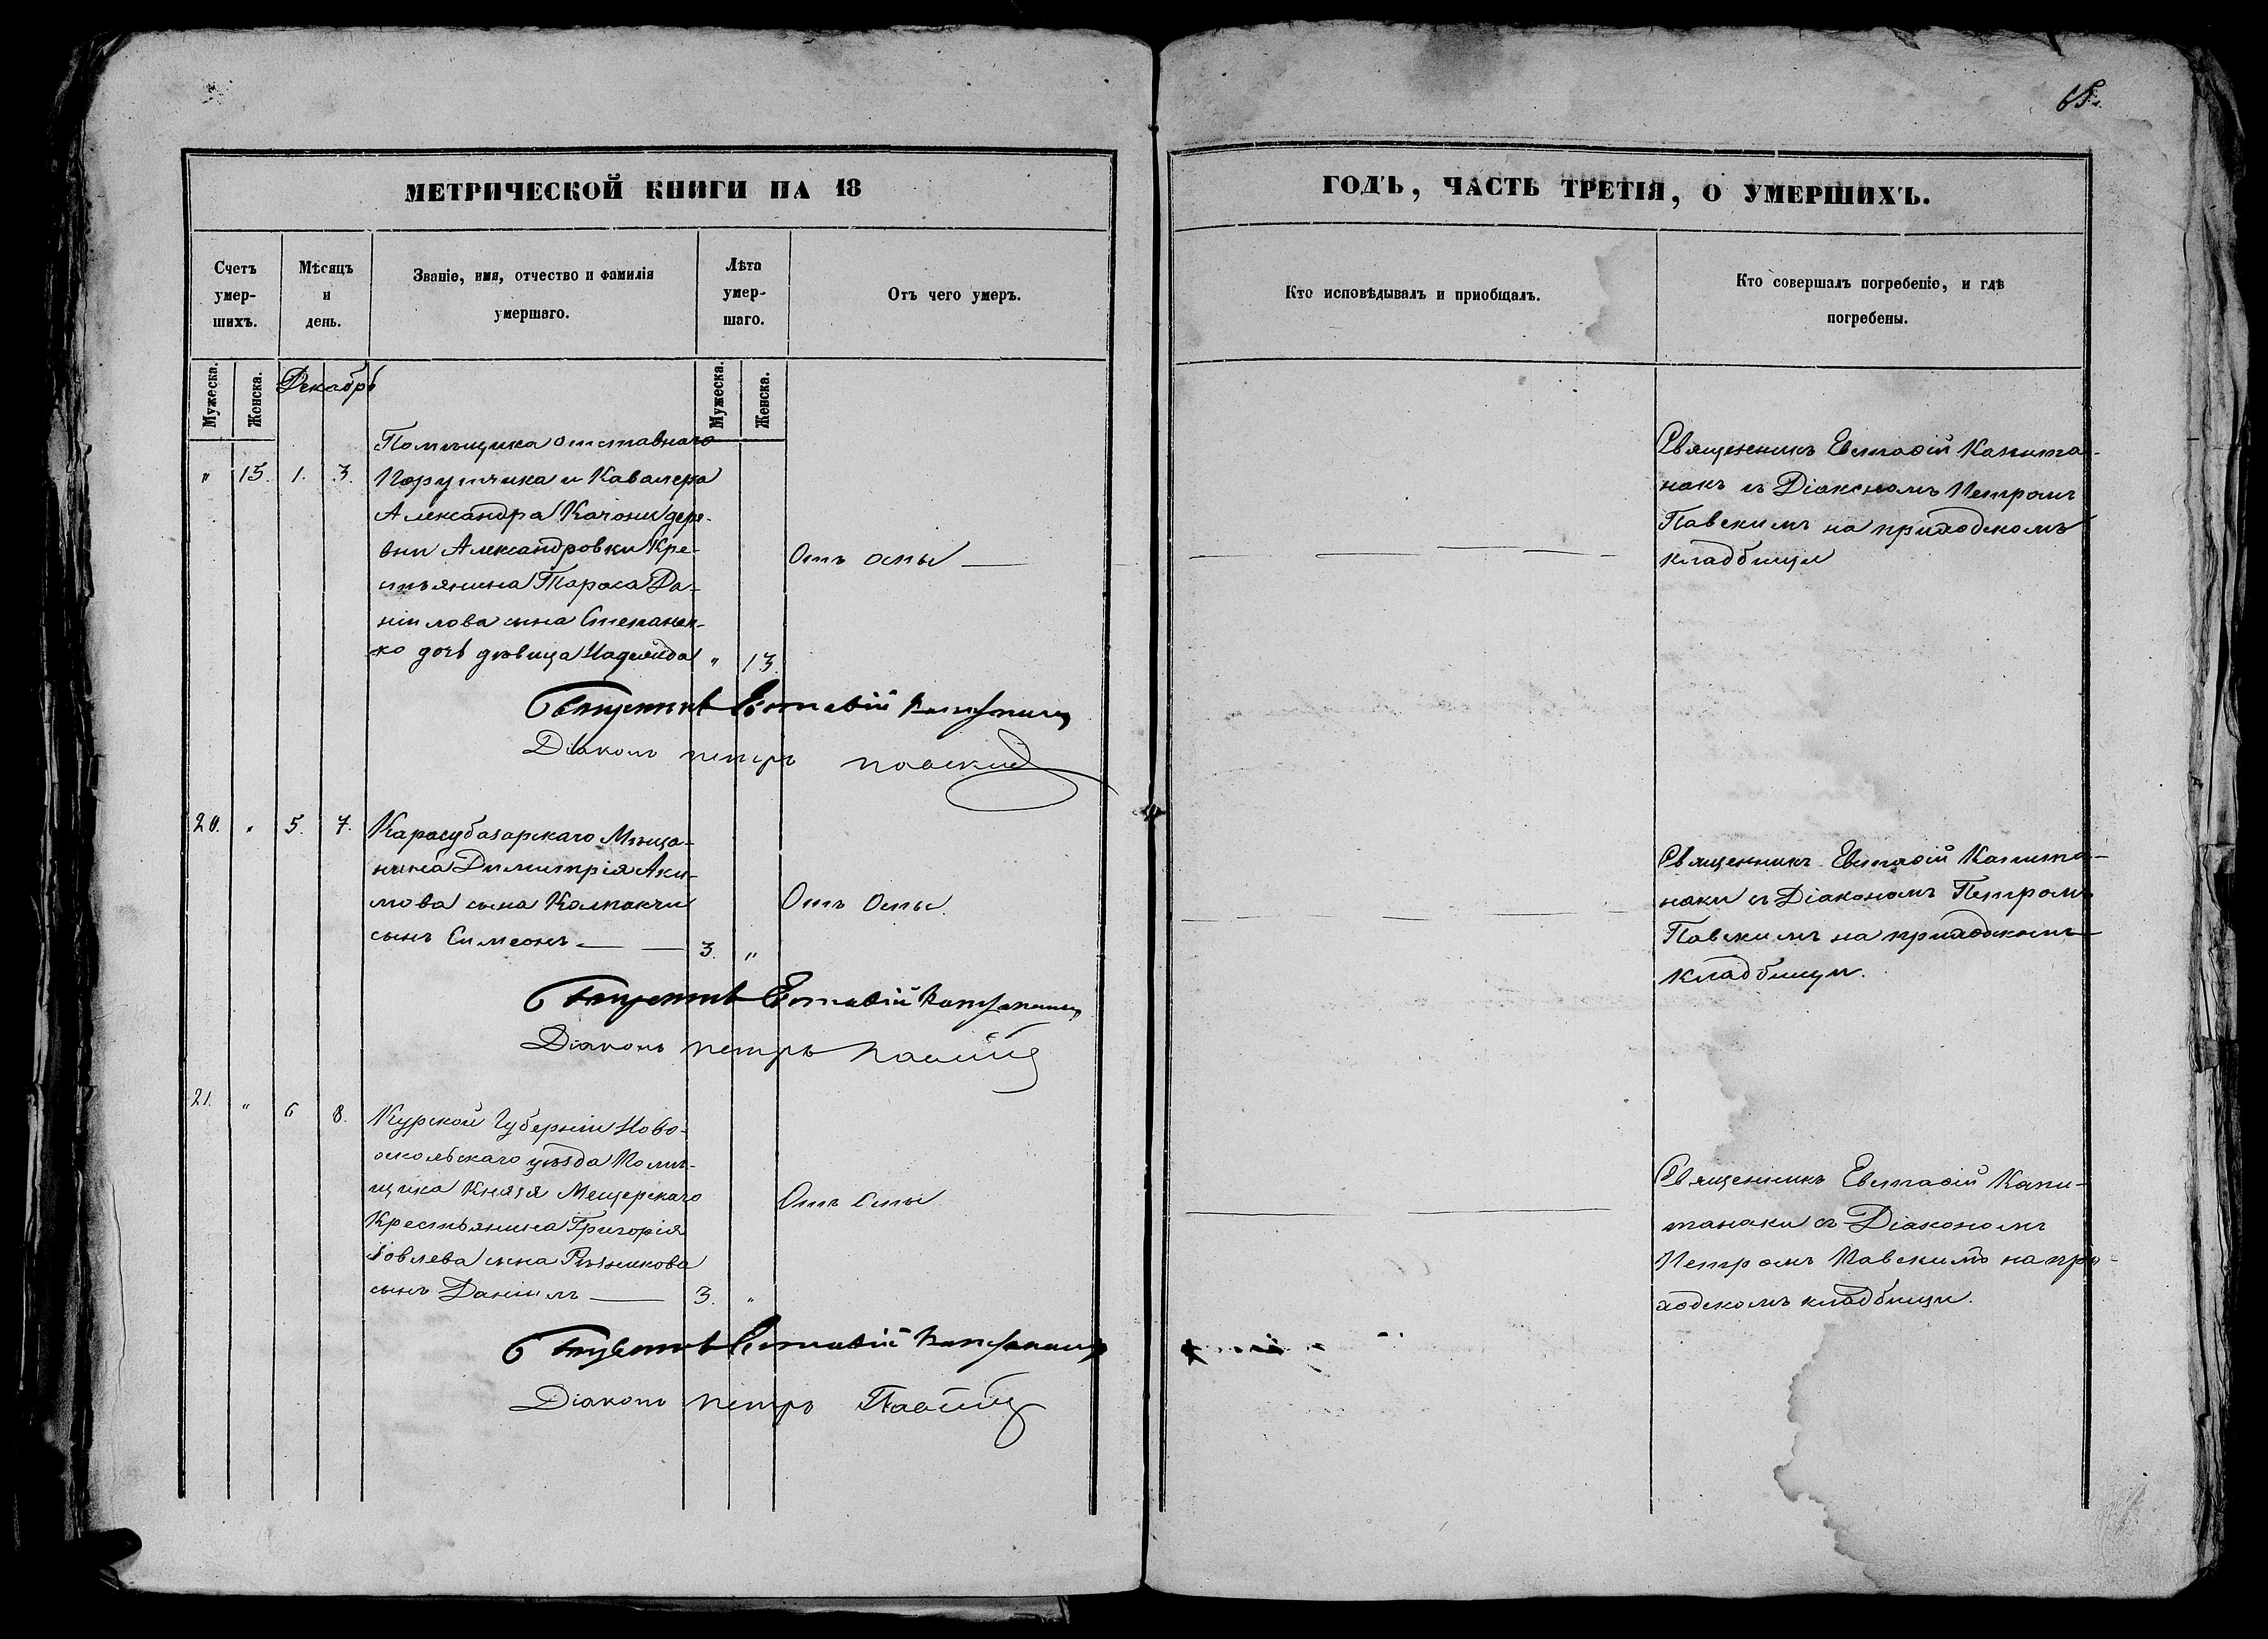 65.
МЕТРИЧЕСКОЙ КНИГИ НА 18
ГОДЪ, ЧАСТЬ ТРЕТІЯ, О УМЕРШИХЪ.
Счетъ умер-шихъ.
Мѣсяцъ и день.
Званіе, имя, отчество и фамилія
умершаго.
Лѣта умер-шаго.
Отъ чего умеръ.
Кто исповѣдывалъ и приобщалъ.
Кто совершалъ погребеніе, и гдѣ
погребены.
Мужеска.
Женска.
Декабрь
Мужеска.
Женска.
Помѣщика отставнаго
" 15. 1. 3. Поручика и Кавалера
Александра Качони дере-
вни Александровки Кре-
стьянина Тараса Да-
ніилова сына Степанен-
ко дочь дѣвица Надежда " 13.
Отъ оспы
Священникъ Евстафій Капита-
наки съ Діакономъ Петромъ
Павскимъ на приходскомъ
кладбищѣ
Священникъ Евстафій Капитанаки
Діаконъ Петръ Павский
20. " 5. 7. Карасубазарскаго Мѣща-
нина Димитрія Аки-
мова сына Калпакчи
сынъ Симеонъ 3. "
Отъ Оспы.
Священникъ Евстафій Капита-
наки съ Діакономъ Петромъ
Павскимъ на приходскомъ
кладбищѣ.
Священникъ Евстафій Капитанаки
Діаконъ Петръ Павский
21. " 6 8. Курской Губерніи Ново-
оскольскаго уѣзда Помѣ-
щика Князя Мещерскаго
Крестьянина Григорія
Іовлева сына Рѣзникова
сынъ Даніилъ 3. "
Отъ Оспы
Священникъ Евстафій Капи-
танаки съ Діакономъ
Петромъ Павскимъ на при-
ходскомъ кладбищѣ.
Священникъ Евстафій Капитанаки
Діаконъ Петръ Павский